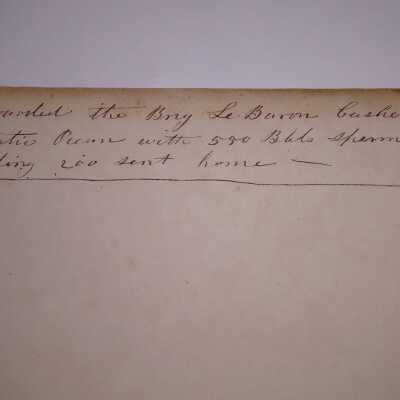 oarded the Brig Le Baron Cushe
ntic Ocean with 550 Bbls sperm
ding 200 sent home —